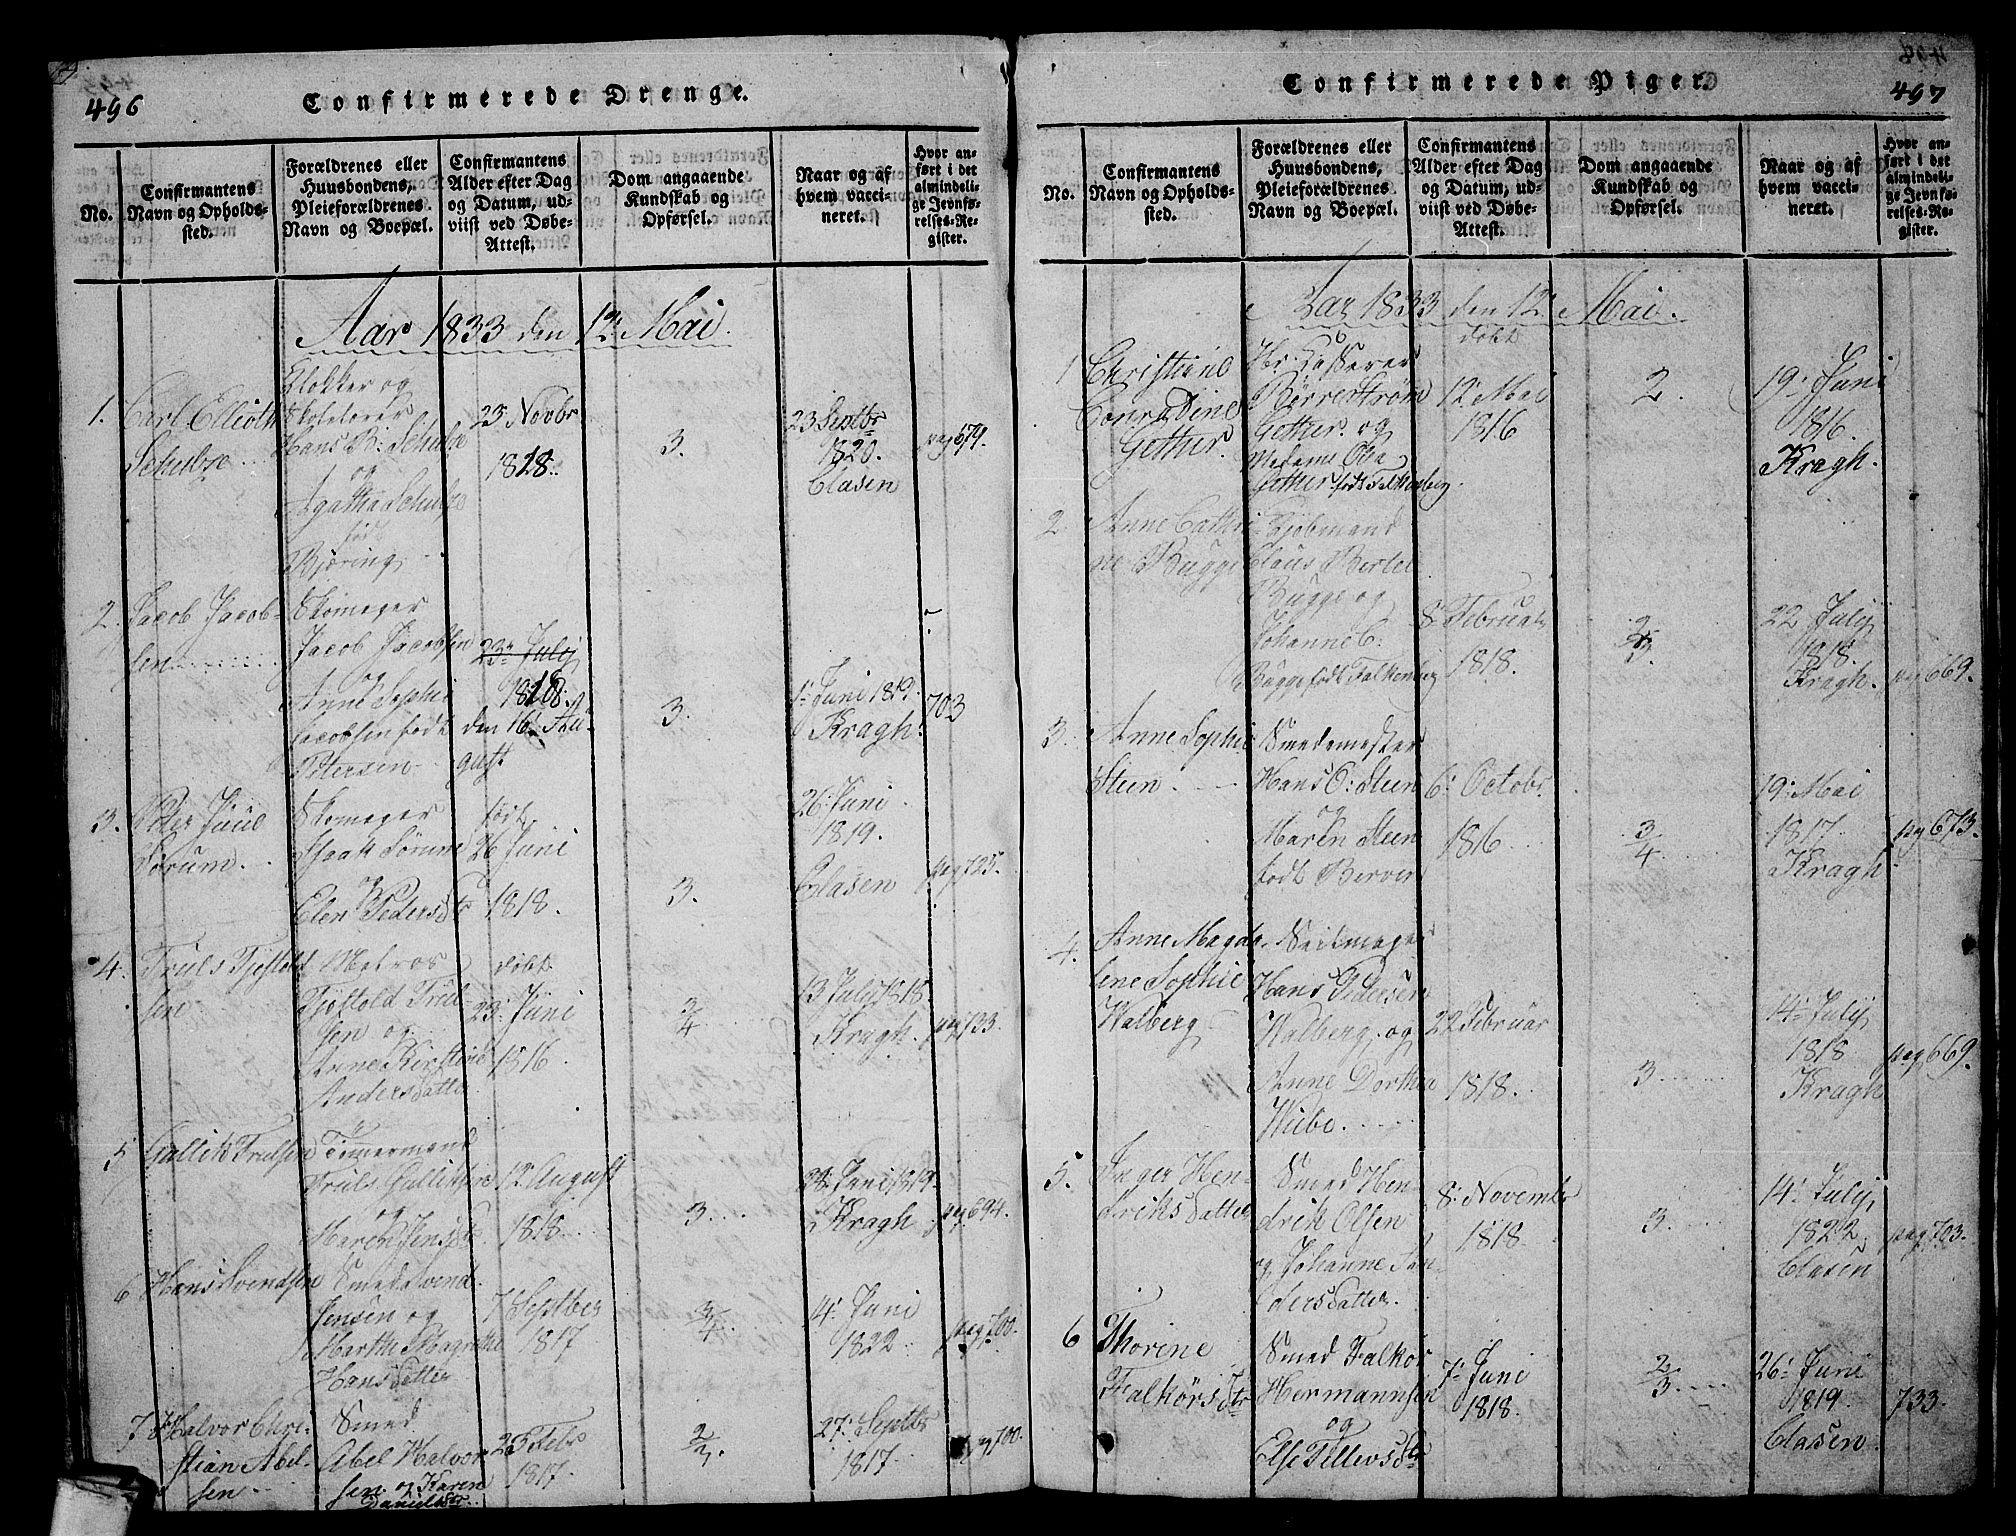 496
Confirmerede Drenge.
No.
Confirmantens
Navn og Opholds-
sted.
Forældrenes eller
Huusbondens,
Pleieforældrenes
Navn og Boepæl.
Confirmantens
Alder efter Dag
og Datum, ud-
viist ved Døbe-
Attest.
Dom angaaende
Kundskab og
Opførsel.
Naar og af
hvem vacci-
neret.
Hvor an-
ført i det
almindeli-
ge Jevnfø-
relses-Re-
gister.
Aar 1833 den 12 Mai.
1.
Carl Ellioth
Schulze
Klokker og
Skolelærer
Hans B: Schulze
og
Agatha Schulze
født
Bjøring
25 Novbr
1818.
3.
23 Septbr
1820.
Clasen
pag 679.
2.
Jacob Jacob-
sen
Skomager
Jacob Jacobsen
og
Anne Sophie
Jacobsen født
Petersen
23 July
1818.
den 16 Au-
gust
3.
1 Juni 1819.
Kragh.
703
3.
Peder Juud
Sørum
Skomager
Isaak Sørum
og
Elen Pedersdtr
født
26 Juni
1818.
3.
26: Juni
1819.
Clasen
pag 725.
4.
Truls Tjøstold
sen
Matros
Tjøstold Trul-
sen og
Anne Kirstine
Andersdatter
døbt
23: Juni
1816.
3/4
13 July 1818.
Kragh.
pag 733.
5
Gullik Trulsen
Tømmermand
Truls Gulliksen
og
Maren Jensdtr
12 August
1818.
3.
28 Juni 1819.
Kragh
pag 694.
6
Hans Svendsen
Smed Svend
Jensen og
Marthe Magrethe
Hansdatter
7 Septber
1817
3/4.
4. Juni
1822
pag 700.
7
Halvor Chri-
stian Abel-
sen
Smed
Abel Halvor
sen og Karen
Danielsdtr
25 Febr
1817.
2/3.
27: Septbr
1817.
pag 700.
497
Confirmerede Piger.
No.
Confirmantens
Navn og Opholds-
sted.
Forældrenes eller
Huusbondens,
Pleieforældrenes
Navn og Boepæl.
Confirmantens
Alder efter Dag
og Datum, ud-
viist ved Døbe-
Attest.
Dom angaaende
Kundskab og
Opførsel.
Naar og af
hvem vacci-
neret.
Hvor an-
ført i det
almindeli-
ge Jevnfø-
relses-Re-
gister.
Aar 1833 den 12 Mai.
1
Christiane
Conradine
Gether.
Hr: Kasserer
Børrestrøm
Gether og
Madame
Gether født Falkenberg.
døbt
12 Mai
1816
2.
19. Juni
1816.
Kragh.
2
Anne Cathri-
ne Bugge
Kjøbmand
Claus Bertel
Bugge og
Johanne C.
Bugge født Falkenberg
8 Februar
1818.
2/3.
22 July
1818.
Kragh.
pag 669.
3.
Anne Sophie
Steen
Smedemester
Hans O: Steen
og
Maren Steen
født Berver
6: Octobr.
1816
3/4
19: Mai
1817.
Kragh
pag 673.
4.
Anne Magda-
lene Sophie
Walberg
Seilmager
Hans Pedersen
Walberg og
Anne Dorthea
Wiibe.
22 Februar
1818.
3.
14 July
1818
Kragh
pag 669.
5.
Inger Hen-
driksdatter
Smed Hen-
drik Olsen
og Johanne An-
dersdatter
8: November
1818.
3.
14. July
1822.
Clasen
pag 703.
6
Thorine
Falkørsdtr
Smed Falkør
Hermannsen
og
Else Tellevsdtr
7. Juni
1818.
2/3.
26: Juni
1819.
Clasen.
733.